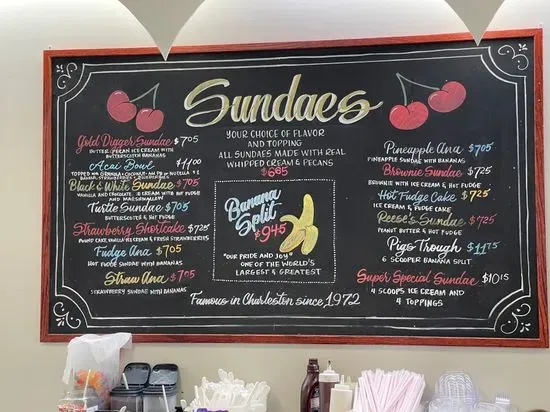 Sundaes
YOUR CHOICE OF FLAVOR
AND TOPPING
ALL SUNDAES MADE WITH REAL
WHIPPED CREAM & PECANS
$6.85
Gold Digger Sundae $7.05
BUTTER PECAN ICE CREAM WITH
BUTTERSCOTCH BANANAS
Acai Bowl $11.00
TOPPED WITH GRANOLA, COCONUT, OR NUTELLA
BANANA, STRAWBERRIES & BLUEBERRIES
Black & White Sundae $7.05
VANILLA AND CHOCOLATE ICE CREAM WITH HOT FUDGE
AND MARSHMALLOW
Turtle Sundae $7.05
BUTTERSCOTCH & HOT FUDGE
Strawberry Shortcake $7.25
POUND CAKE, VANILLA ICE CREAM & FRESH STRAWBERRIES
Fudge Ana $7.05
HOT FUDGE SUNDAE WITH BANANAS
Straw Ana $7.05
STRAWBERRY SUNDAE WITH BANANAS
Banana
Split
$9.45
"OUR PRIDE AND JOY"
ONE OF THE WORLD'S
LARGEST & GREATEST
Pineapple Ana $7.05
PINEAPPLE SUNDAE WITH BANANAS
Brownie Sundae $7.25
BROWNIE WITH ICE CREAM & HOT FUDGE
Hot Fudge Cake $7.25
ICE CREAM & FUDGE CAKE
Reese's Sundae $7.25
PEANUT BUTTER & HOT FUDGE
Pigs Trough $11.75
6 SCOOPER BANANA SPLIT
Super Special Sundae $10.15
4 SCOOPS ICE CREAM AND
4 TOPPINGS
Famous in Charleston since 1972